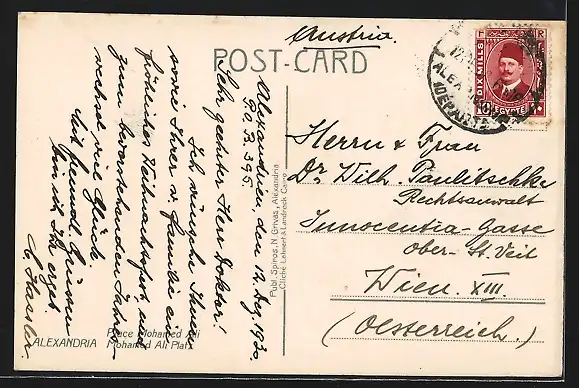 Austria.
POST-CARD
Alexandrien den 12. Dez. 1930.
P.O.B. 395
Sehr geehrter Herr Doktor!
Ich wünsche Ihnen
sowie Ihrer w. Familie ein
fröhliches Weihnachtsfest, und
zum bevorstehenden Jahres-
wechsel viel Glück.
Mit freundl. Grüssen
bin ich Ihr ergeb.
ALEXANDRIA
Place Mohamed Ali
Mohamed Ali Platz
Publ. Spiros. N. Grivas, Alexandria
Cliché Lehnert & Landrock Cairo
DIX MILLS
EGYPTE
ALEX
DEPART
Herrn & Frau
Dr. Wilh. Paulitschke
Rechtsanwalt
Innocentia-Gasse
ober-St. Veit
Wien. XIII.
(Oesterreich.)